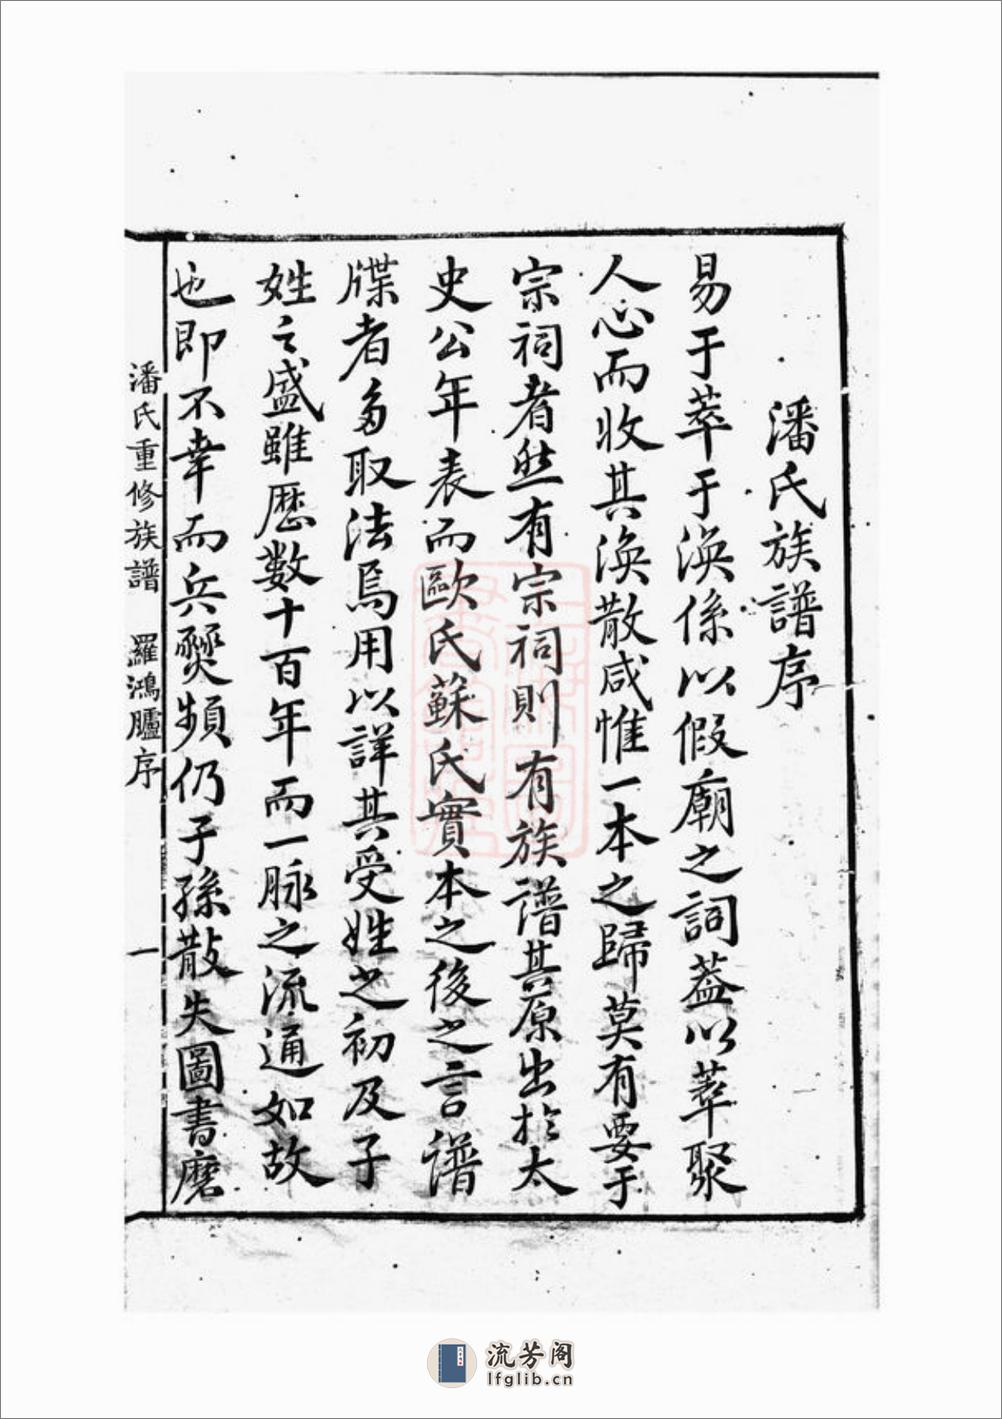 潘氏族譜序
易于萃于渙係以假廟之詞葢以萃聚
人心而收其渙散咸惟一本之歸莫有要于
宗祠者然有宗祠則有族譜其原出於太
史公年表而歐氏蘇氏實本之後之言譜
牒者多取法焉用以詳其受姓之初及子
姓之盛雖歷數十百年而一脉之流通如故
也即不幸而兵燹頻仍子孫散失圖書麿
潘氏重修族譜 羅鴻臚序 一
流芳阁
lfglib.cn